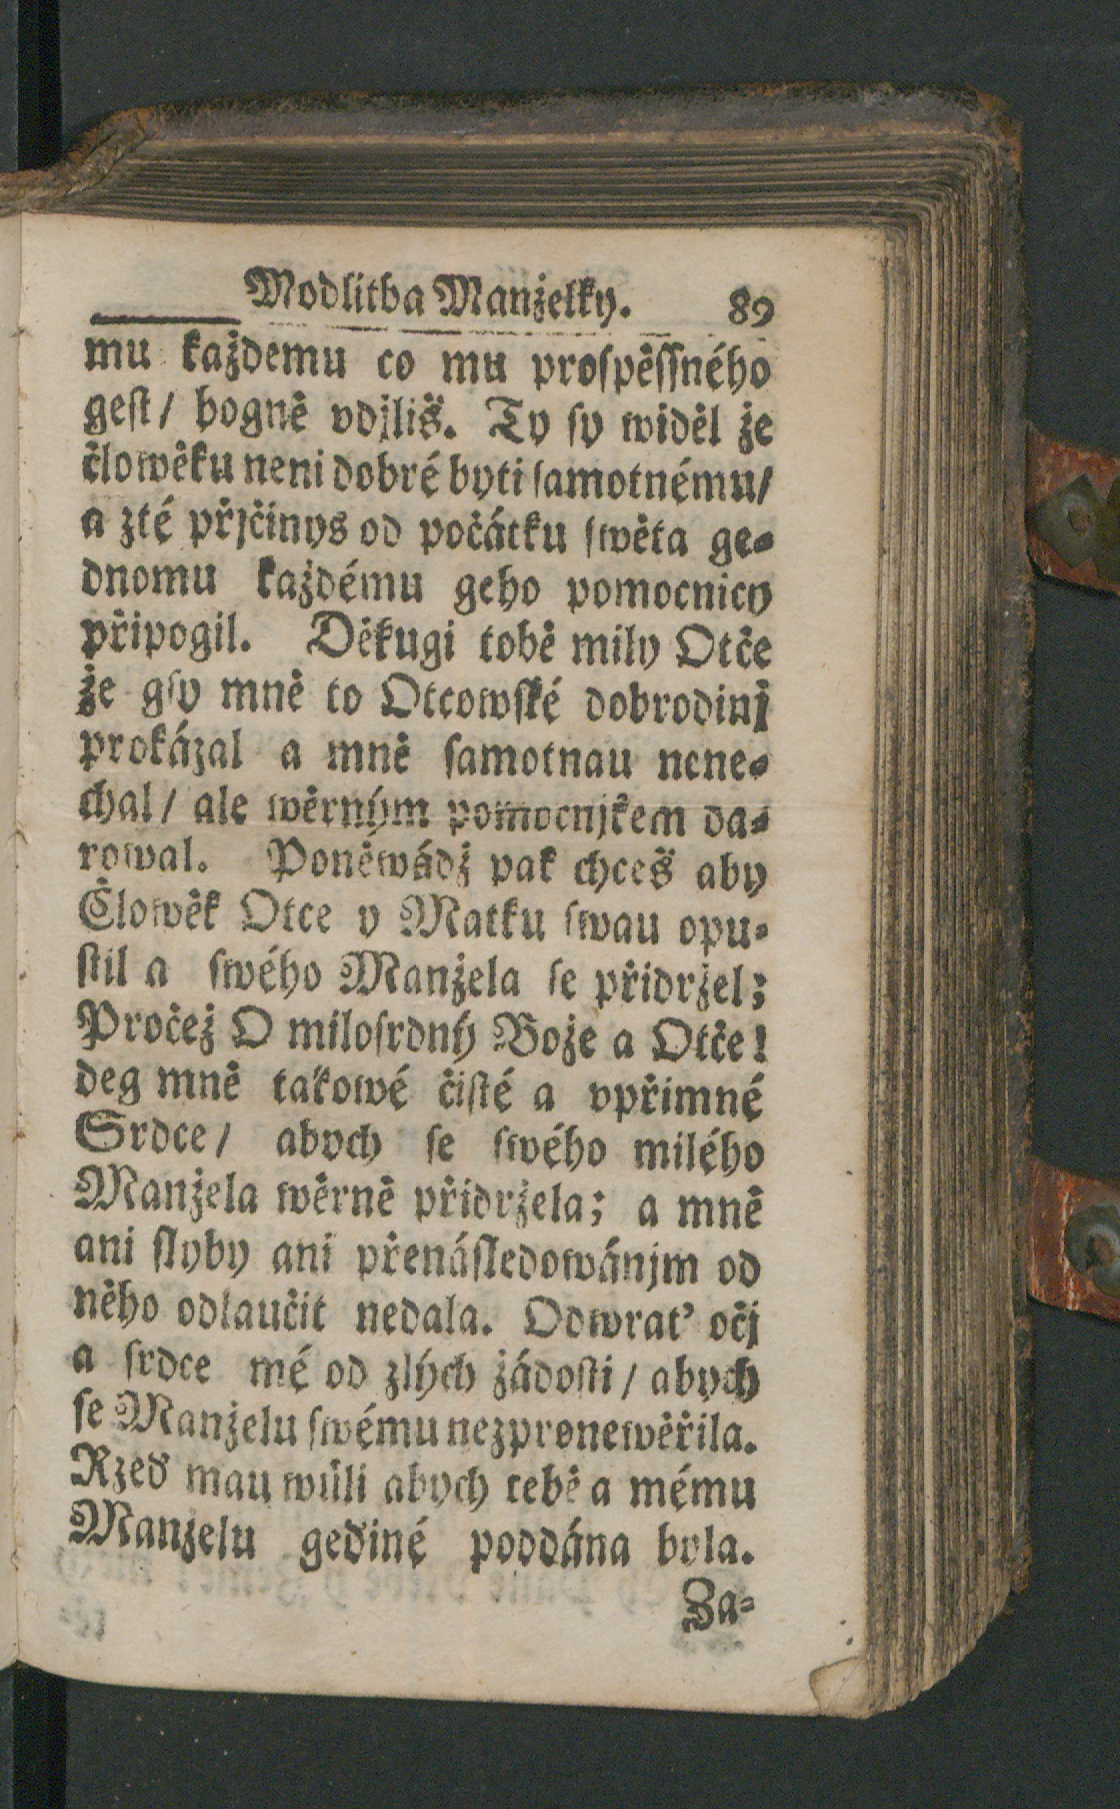 Modlitba Manželky. 89
mu každemu co mu proſpěſſného
geſt/ hogně vdjliš. Ty ſy widěl že
člowěku neni dobré byti ſamotnému/
a zté přjčinys od počátku ſwěta ge-
dnomu každému geho pomocnicy
připogil. Děkugi tobě mily Otče
že gſy mně to Otcowſké dobrodinj
prokázal a mně ſamotnau nene-
chal/ ale wěrným pomocnjkem da-
rowal. Poněwádž pak chceš aby
Člowěk Otce y Matku ſwau opu-
ſtil a ſwého Manžela ſe přidržel;
Pročež O miloſrdný Bože a Otče!
deg mně takowé čiſté a vpřimné
Srdce/ abych ſe ſwého milého
Manžela wěrně přidržela; a mně
ani ſlyby ani přenáſledowánjm od
něho odlaučit nedala. Odwrat' očj
a ſrdce mé od zlých žádoſti/ abych
ſe Manželu ſwému nezpronewěřila.
Rzeď mau wůli abych tebě a mému
Manželu geďiné poddána byla.
Za-